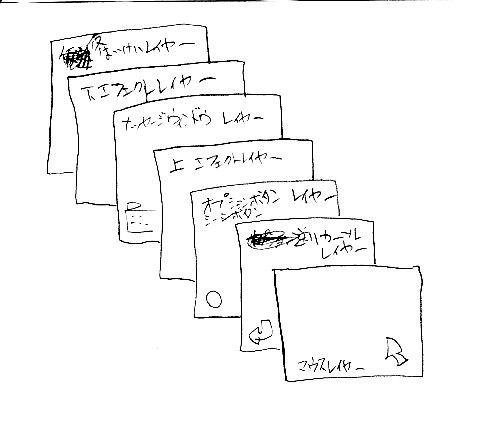 はいけいレイヤー
下エフェクトレイヤー
メッセージウィンドウ レイヤー
上 エフェクトレイヤー
オプションボタン レイヤー
シーンボタン
カーソル
レイヤー
マウスレイヤー